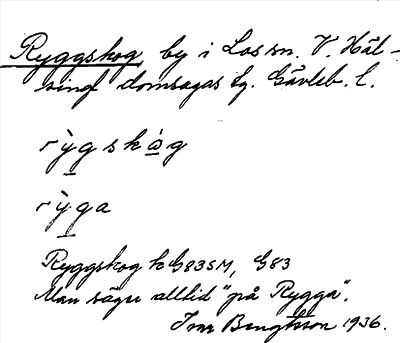 Ryggskog, by i Los sn. V. Häl-
singl domsagas tg. Gävleb. l.
rỳgskȧg
rỳga
Ryggskog k G83SM, G83
Man säger alltid "på Rygga".
Ivar Bengtsson 1936.